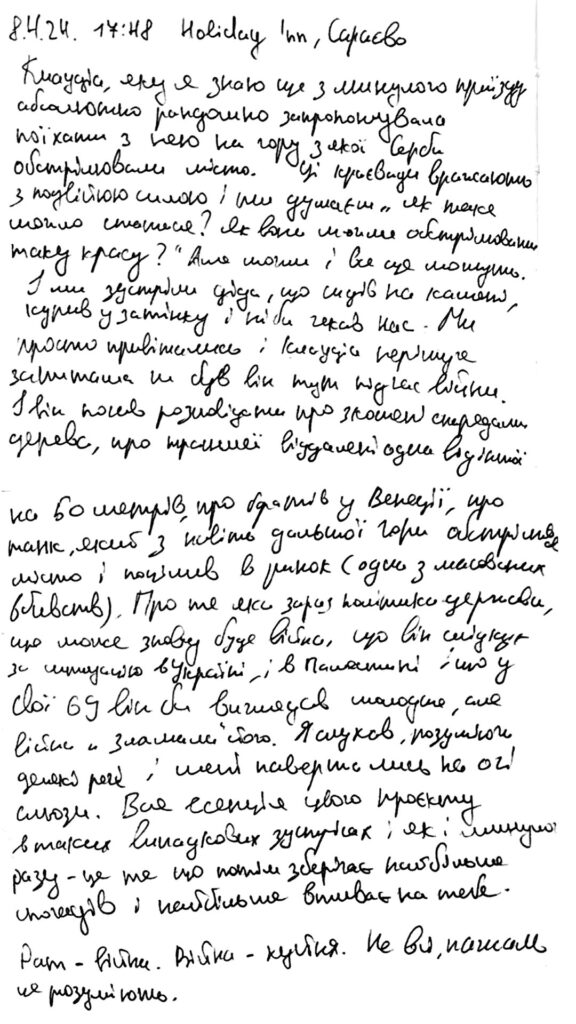 8.4.24. 17:48 Holiday Inn, Сараєво
Клаудія, яку я знаю ще з минулого приїзду
абсолютно рандомно запропонувала
поїхати з нею на гору з якої Серби
обстрілювали місто. Ці краєвиди вражають
з подвійною силою і ти думаєш „як таке
могло статися? Як вони могли обстрілювати
таку красу?" Але могли і все ще можуть.
І ми зустріли діда, що сидів на камені,
курив у затінку і ніби чекав нас. Ми
просто привітались і Клаудія перішуче
запитала чи був він тут під час війни.
І він почав розповідати про зкошені снарядами
дерева, про траншеї віддалені одна від іншої
на 60 метрів, про братів у Венеції, про
танк, який з навіть дальшої гори обстрілював
місто і поцілив в ринок (одне з масованих
вбивств). Про те яка зараз політика держави,
що може знову буде війна, що він слідкує
за ситуацією в Україні, і в Палестині і що у
свої 69 він би виглядав молодше, але
війна зламала його. Я слухав, розуміючи
деякі речі і мені навертались на очі
сльози. Вся есенція цього проєкту
в таких випадкових зустрічах і як і минулого
разу - це те що потім зберігає найбільше
спогадів і найбільше впливає на тебе.
Рат - війна. Війна - кухня. Не всі, на жаль
це розуміють.